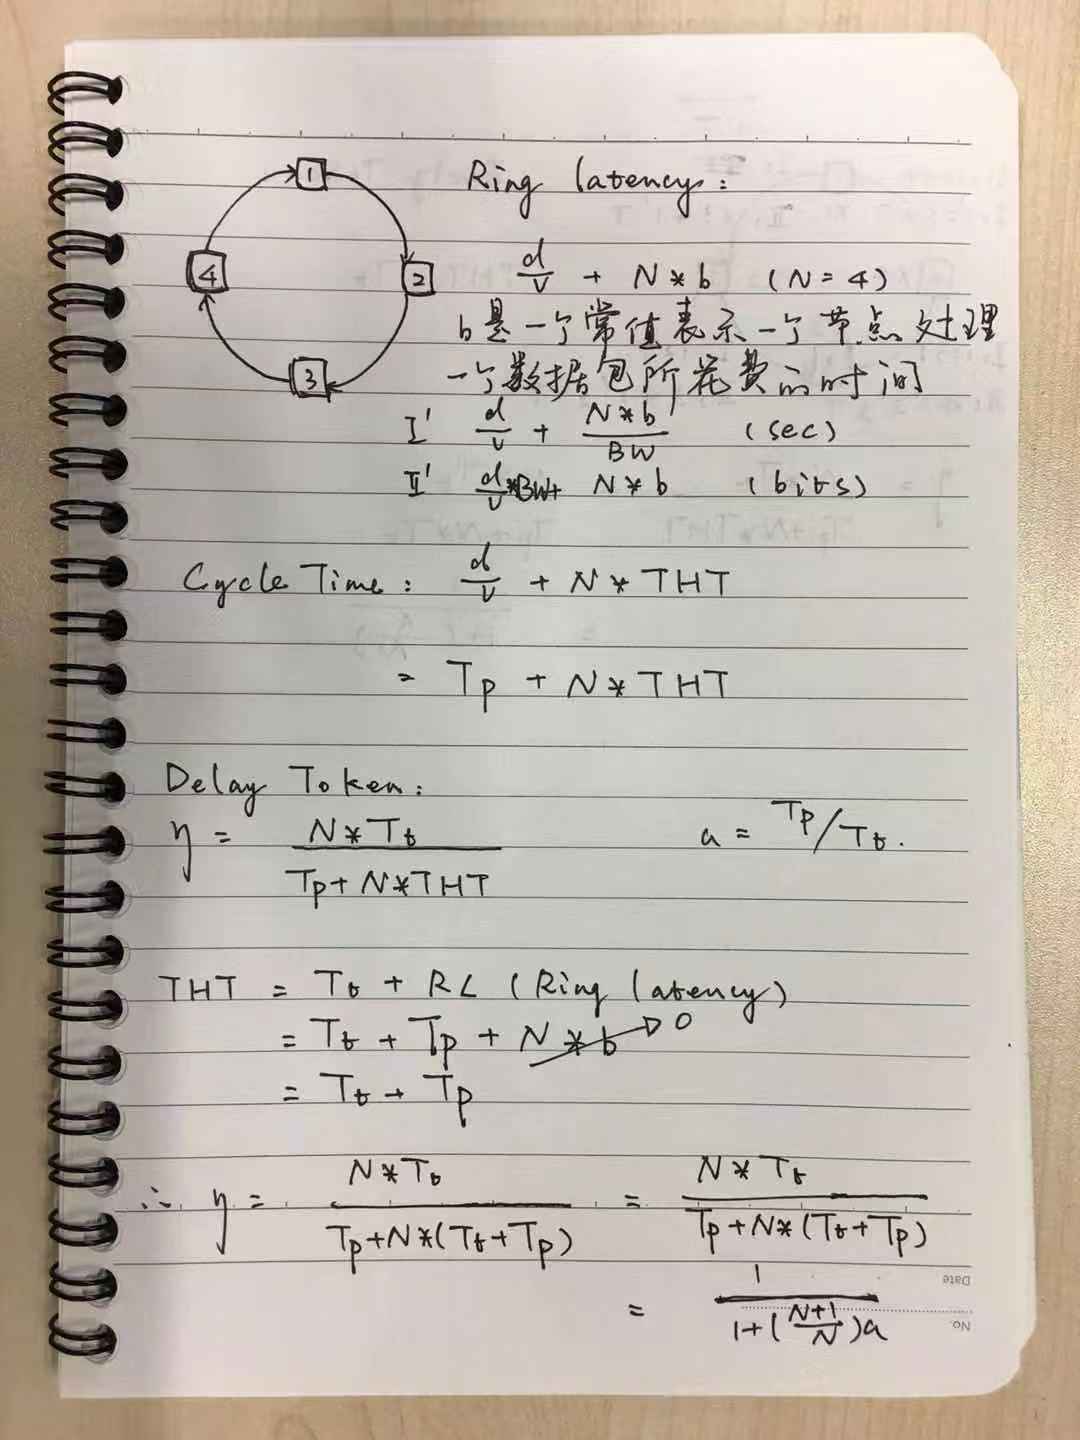 1
2
3
4
Ring latency:
d/v + N*b (N=4)
b是一个常值表示一个节点处理
一个数据包所花费的时间
I' d/v + N*b/BW (sec)
II' d/v*BW+ N*b (bits)
Cycle Time: d/v + N*THT
= Tp + N*THT
Delay Token:
η = N*Tt/Tp+N*THT a = Tp/Tt.
THT = Tt + RL (Ring latency)
= Tt + Tp + N*b → 0
= Tt + Tp
∴ η = N*Tt/Tp+N*(Tt+Tp) = N*Tt/Tp+N*(Tt+Tp)
= 1/1+(N+1/N)a
Date
No.